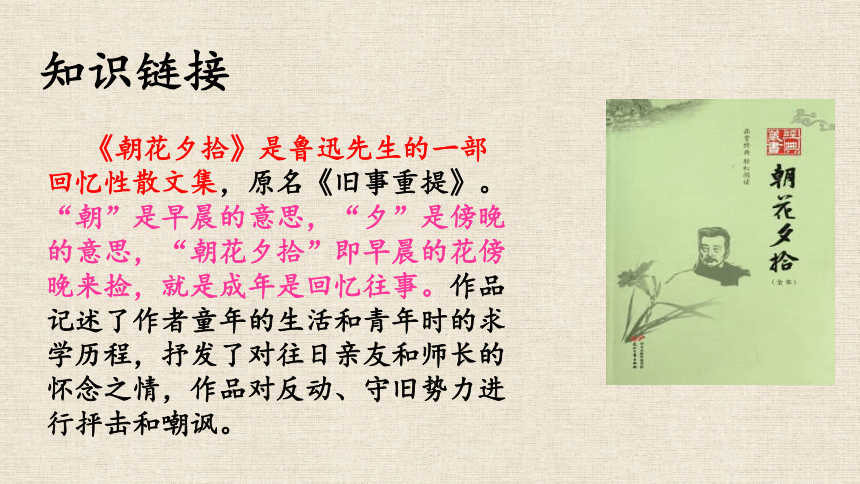 知识链接
《朝花夕拾》是鲁迅先生的一部
回忆性散文集，原名《旧事重提》。
“朝”是早晨的意思，“夕”是傍晚
的意思，“朝花夕拾”即早晨的花傍
晚来捡，就是成年是回忆往事。作品
记述了作者童年的生活和青年时的求
学历程，抒发了对往日亲友和师长的
怀念之情，作品对反动、守旧势力进
行抨击和嘲讽。
經典
藏書
品赏经典 轻松阅读
朝花夕拾
（全本）